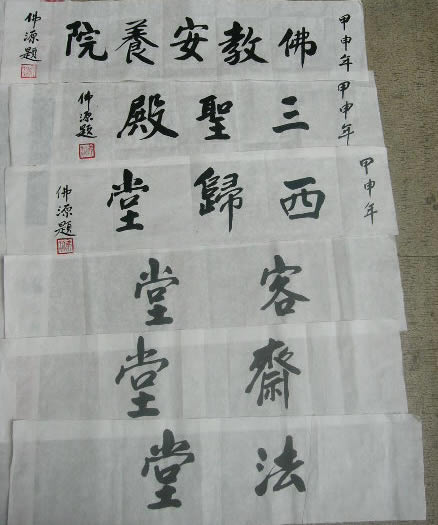 甲申年 佛教安養院 佛源題
甲申年 三聖殿 佛源題
甲申年 西歸堂 佛源題
客堂
齋堂
法堂